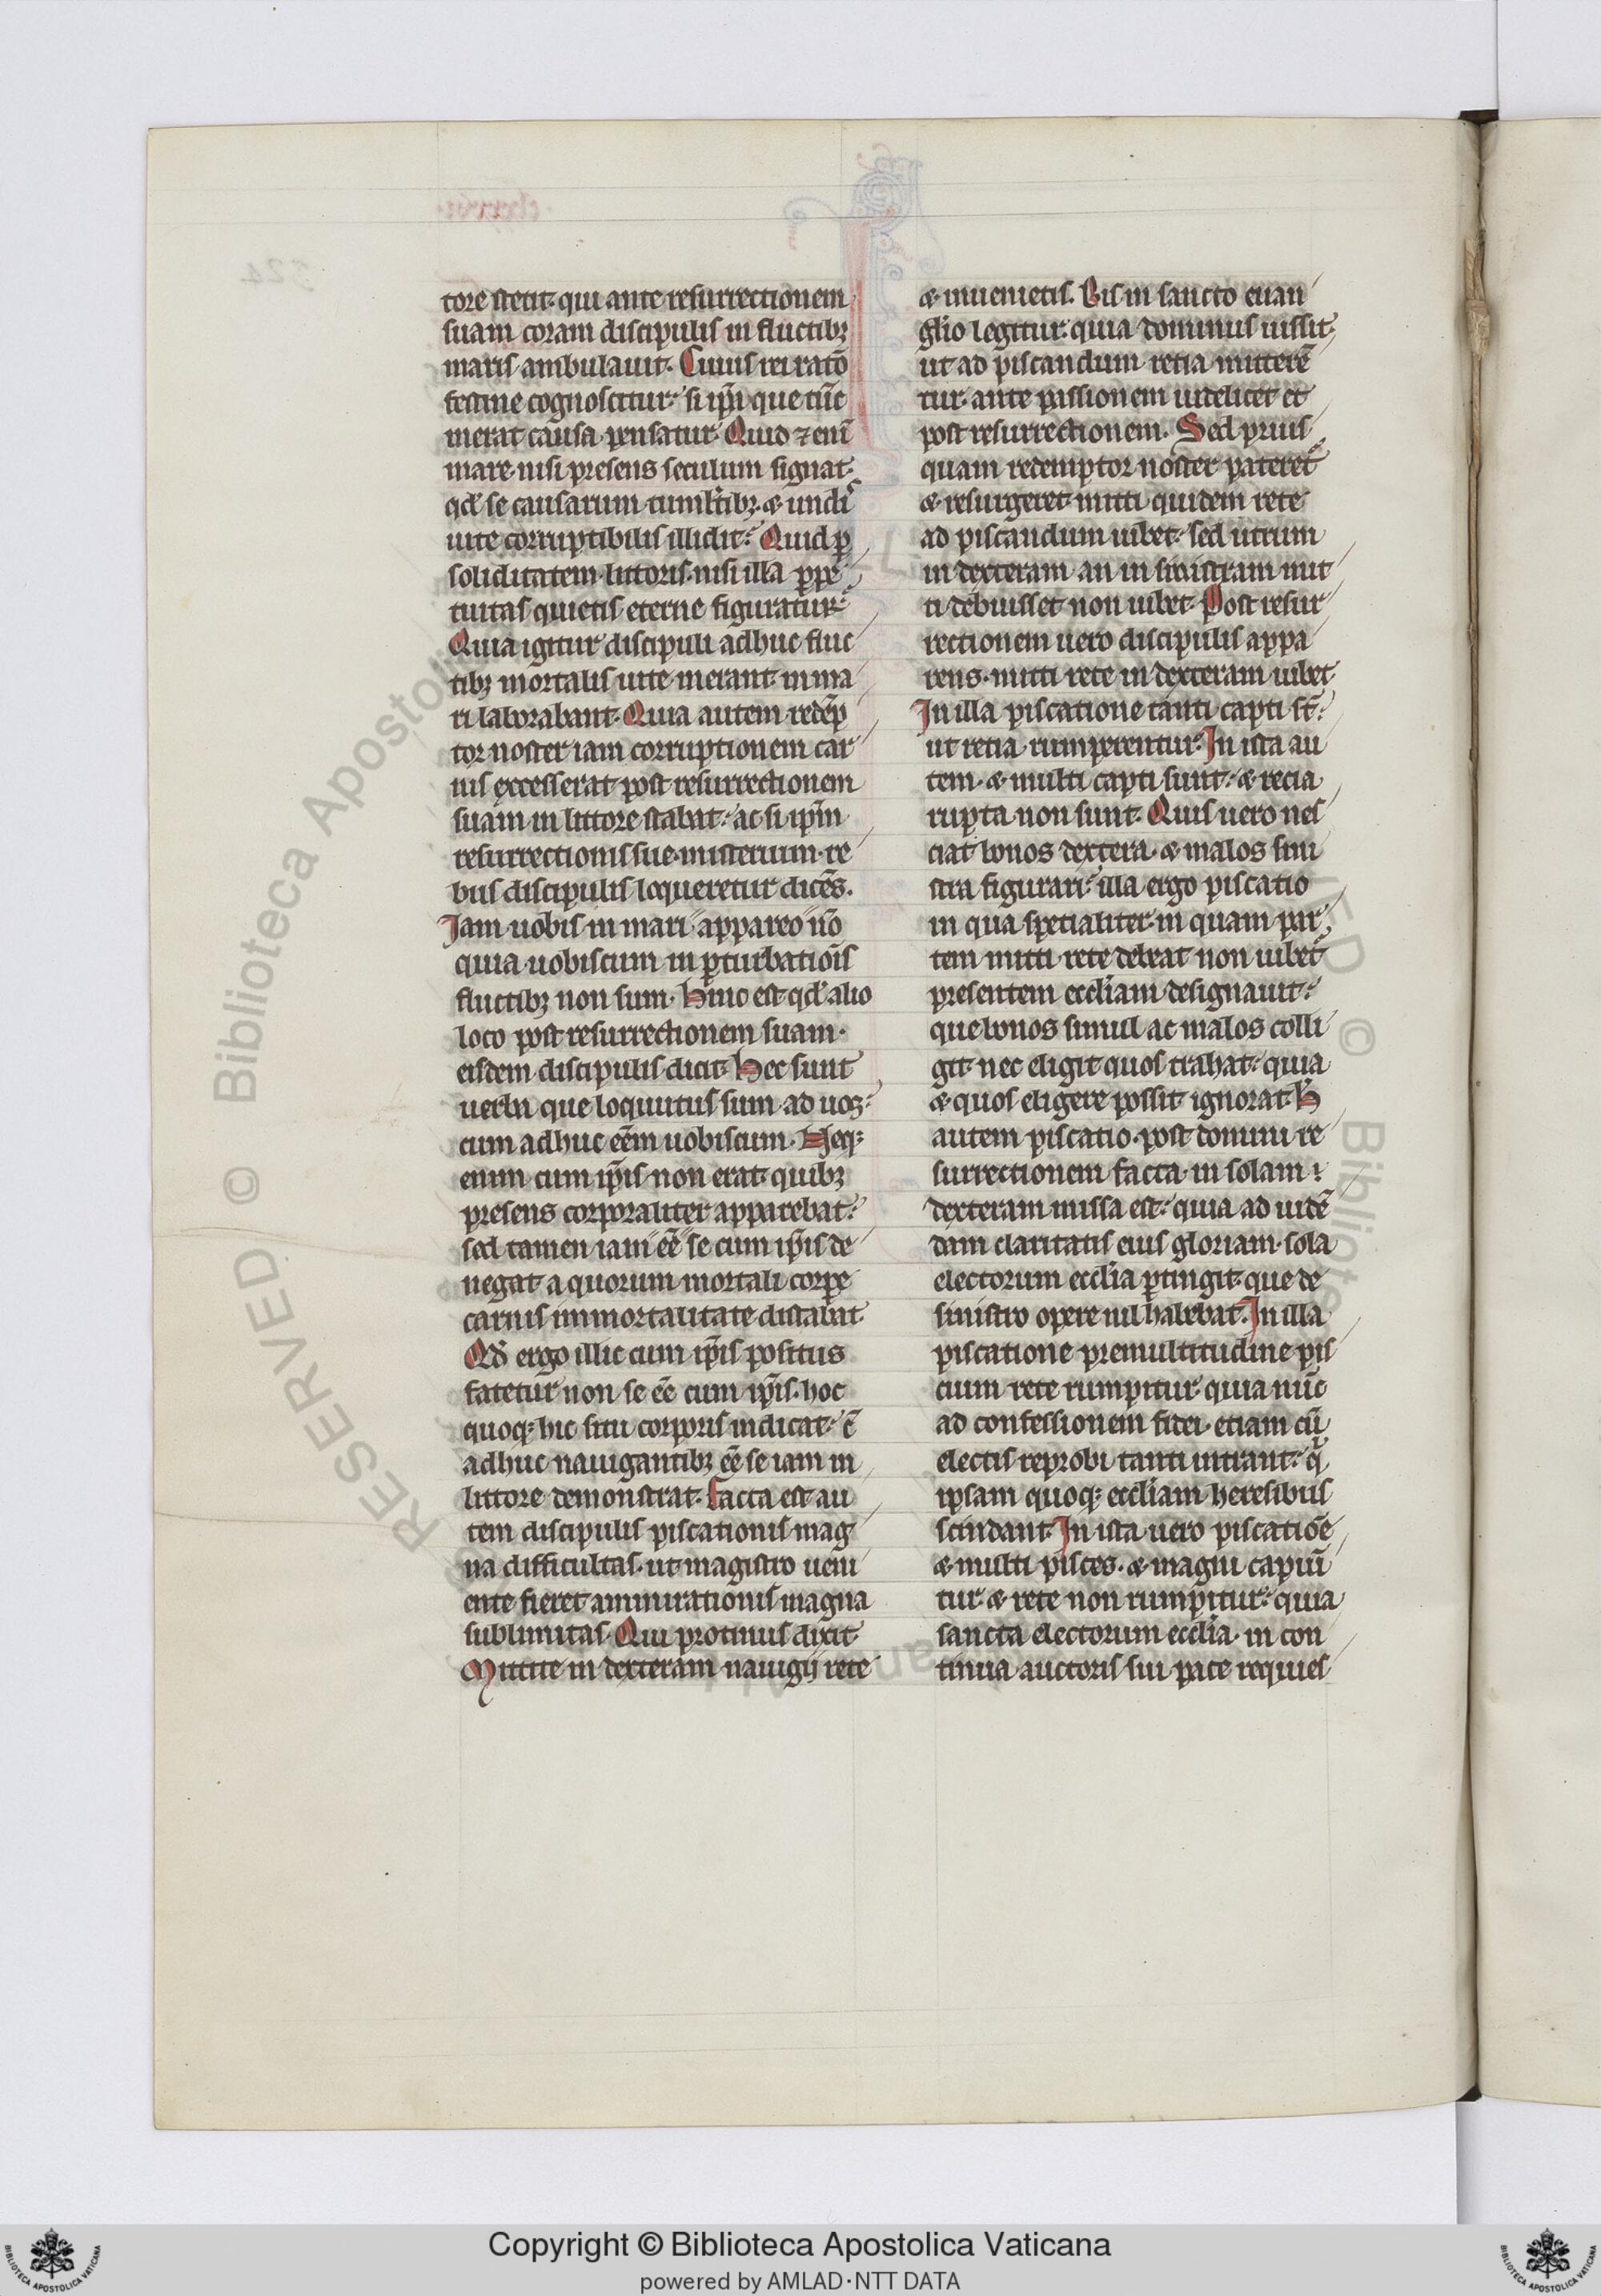 tore stetit· qui ante resurrectionem
suam coram discipulis in fluctibꝫ
maris ambulauit. Cuius rei ratō
festine cognoscitur· si ip̄a que tūc
inerat causa pensatur· Quid ⁊ enī
mare· nisi presens seculum signat·
qd̄ se causarum tumultibꝫ· & undis
uite corruptibilis illidit· Quid ꝑ
soliditatem littoris· nisi illa ꝑpe
tuitas quietis eterne figuratur·
Quia igitur discipuli adhuc fluc
tibꝫ mortalis uite inerant· in ma
ri laborabant· Quia autem redēp
tor noster iam corruptionem car
nis excesserat post resurrectionem
suam in littore stabat· ac si ip̄m
resurrectionis sue· misterium· re
bus discipulis loqueretur dicēs.
Iam uobis in mari appareo nō
quia uobiscum in ꝑturbatiōis
fluctibꝫ non sum· Hinc est qd̄ alio
loco post resurrectionem suam·
eisdem discipulis dicit· Hec sunt
uerba que loquutus sum ad uos·
cum adhuc eēm uobiscum· Neqꝫ
enim cum ip̄is non erat· quibꝫ
presens corporaliter apparebat·
sed tamen iam eē se cum ip̄is de
negat a quorum mortali corꝑe
carnis immortalitate distabat·
Qd̄ ergo illic cum ip̄is positus
fatetur non se eē cum ip̄is· hoc
quoqꝫ hic situ corporis indicat· c̄
adhuc nauigantibꝫ eē se iam in
littore demonstrat· Facta est au
tem discipulis piscationis mag
na difficultas· ut magistro ueni
ente fieret ammirationis magna
sublimitas· Qui protinus dixit
Mittite in dexteram nauigij rete
& inuenietis. Bis in sancto euan
glīo legitur· quia dominus iussit
ut ad piscandum retia mitterē
tur· ante passionem uidelicet et
post resurrectionem. Sed prius
quam redemptor noster pateret̄
& resurgeret· mitti quidem rete
ad piscandum iubet· sed utrum
in dexteram an in sinistram mit
ti debuisset non iubet· Post resur
rectionem uero discipulis appa
rens· mitti rete in dexteram iubet
In illa piscatione tanti capti st̄·
ut retia rumperentur· In ista au
tem· & multi capti sunt· & recia
rupta non sunt· Quis uero nes
ciat bonos dextera· & malos sini
stra figurari· illa ergo piscatio
in qua spetialiter in quam par
tem mitti rete debeat non iubet
presentem eccl̄iam designauit·
que bonos simul ac malos colli
git· nec eligit quos trahat· quia
& quos eligere possit ignorat· H̄
autem piscatio· post domini re
surrectionem facta· in solam ı
dexteram missa est· quia ad uidē
dam claritatis eius gloriam· sola
electorum eccl̄ia ꝑtingit· que de
sinistro opere nil habebat· In illa
piscatione premultitudine pis
cium rete rumpitur· quia nūc
ad confessionem fidei· etiam cū
electis reprobi tanti intrant· q̄
ipsam quoqꝫ eccl̄iam heresibus
scindant· In ista uero piscatiōe
& multi pisces· & magni capiū
tur· & rete non rumpitur· quia
sancta electorum eccl̄ia· in con
tinua auctoris sui pace requies
RESERVED © Biblioteca Apostolica
Copyright © Biblioteca Apostolica Vaticana
powered by AMLAD·NTT DATA
BIBLIOTECA APOSTOLICA VATICANA
BIBLIOTECA APOSTOLICA VATICANA